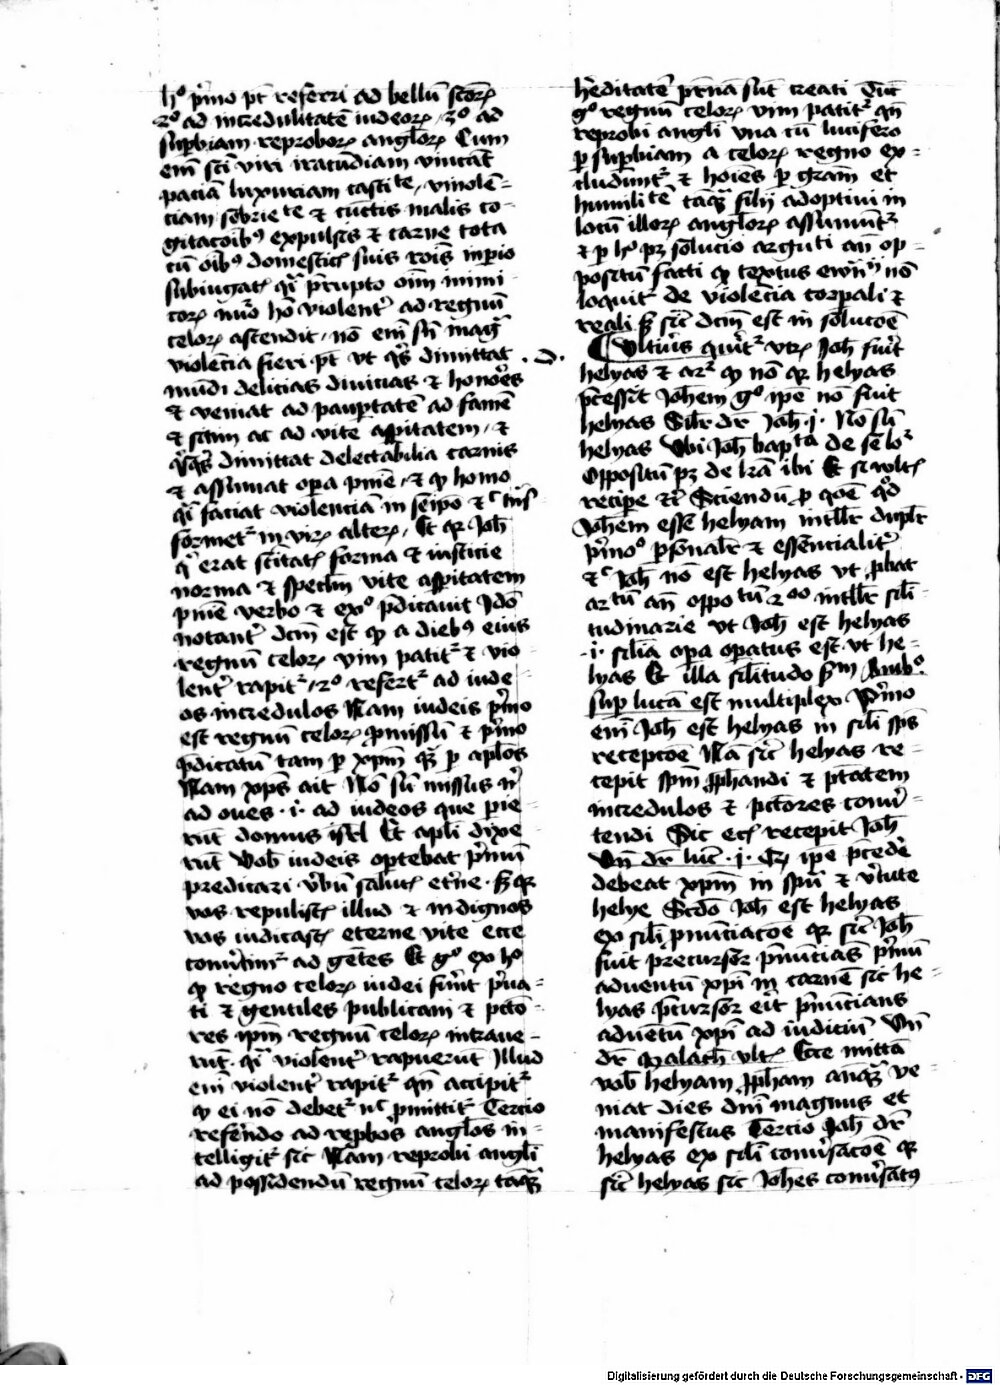 h° p̄mo pt̄ referri ad bellū sctōꝝ
2° ad incredulitatē iudeoꝝ / 3° ad
supbiam reproboꝝ angloꝝ Cum
em̄ scti viri iracūdiam vincāt
paciā luxuriam castite / vinolen-
ciam sobriete ⁊ cūctis malis co-
gitacoībꝰ expulsis ⁊ carne tota
cū oībꝰ domesticꝭ suis rois inpio
subiugatꝭ
violenter ad regnū
celoꝝ ascendit / nō em̄
violēcia fieri pt̄ vt qͥs dimittat
mūdi delicias diuicias ⁊ honoꝛes
⁊ veniat ad paupꝛtatē ad famē
⁊ sitim ac ad vite aspitatem / ⁊
dimittat delectabilia carnis
⁊ assumat opa pnīe / ⁊ ꝙ homo
faciat violenciā in seīpo ⁊
formetᷣ in viꝝ alteꝝ / Et qꝛ Joh̄
erat sctitatꝭ forma ⁊ iusticie
norma ⁊ spectm̄ vite aspitatem
pnīe verbo ⁊ ex° pdicauit Jdō
notantᷣ dcm̄ est ꝙ a diebꝰ eius
regnū celoꝝ vim patitᷣ ⁊ vio-
lentᷣ rapitᷣ / 2° refertᷣ ad iude-
os incredulos Nam iudeis p̄mo
est regnū celoꝝ ꝓmissū ⁊ p̄mo
pdicatū tam p xpm̄ qͣꝫ p aplos
Nam xps̄ ait Nō sū missus nͥ
ad oues .i. ad iudeos que pie-
rūt domus isrl̄ Et apli dixe-
rūt Vob̄ iudeis optebat p̄mū
predicari vbū salutꝭ etne . sꝫ qꝛ
vos repulistꝭ illud ⁊ indignos
vos iudicastꝭ eterne vite ecce
conutimᷣ ad gētes Et g° ex h°
ꝙ regno celoꝝ iudei fūnt pua-
ti ⁊ gentiles publicani ⁊ pctō-
res ipm̄ regnū celoꝝ intraue-
rūt . qͥ violentᷣ rapuerūt Illud
em̄ violentᷣ rapitᷣ qn̄ accipitᷣ
ꝙ ei nō debetᷣ nͨ pmittitᷣ Tercio
referēdo ad repbos anglos in-
telligitᷣ sic Nam reprobi angli
ad possidendū regnū celoꝝ taꝙͣ
h̄editatē pt̄nā sūt creati Dūt
g° regnū celoꝝ vim patitᷣ qn̄
reprobi angli vna cū lucifero
p supbiam a celoꝝ regno ex-
cludūntᷣ ⁊ hoīes p grām et
humilitē taꝙͣ filij adoptiui in
locū illoꝝ angloꝝ assumūntᷣ
⁊ p h° pꝫ solucio arguti an̄ op-
positū facti ꝙ textus ewn̄ nō
loquitᷣ de violēcia corpali ⁊
reali sꝫ sic dcm̄ est in solucoē
.D. Vltius qͥritᷣ vtꝝ Joh̄ fuit
helyas ⁊ arᷣ ꝙ nō qꝛ helyas
pcessit Joh̄em g° ipē nō fuit
helyas Silr̄ dr̄ Joh̄ .j. Nō sū
helyas Vbi Joh̄ bapta de se lo
Oppositū pꝫ de lrā ibi Et si vultꝭ
recipe ⁊c̄ Sciendū p qōe qͦd
Joh̄em esse helyam intllr̄ duplr̄
p̄mo° psonalr̄ ⁊ essēncialit
⁊ͨ Joh̄ nō est helyas vt ꝓbat
artū an̄ oppotū 2°° intllr̄ sili-
tudinarie vt Joh̄ est helyas
.i. silia opa opatus est vt he-
lyas Et illa silitudo sm̄ Amb°
sup lucā est multiplex Pͥmo
em̄ Joh̄ est helyas in sili sps̄
recepcoē Nā sic helyas re-
cepit spm̄ ꝓphandi ⁊ ptātem
incredulos ⁊ pctores conu-
tendi Sic ecꝭ recepit Joh̄
Vn̄ dr̄ luc̄ .j. Qꝫ ipe pcedē
debeat xpm̄ in spū ⁊ vtute
helye Scdō Joh̄ est helyas
ex sili pnūciacoē qꝛ sic Joh̄
fuit precursor pnūcians p̄mū
aduentū xpi in carnē sic he-
lyas pcursor eit pnūcians
aduētū xpi ad iudiciū Vn̄
dr̄ Malach̄ vltꝭ Ecce mittā
vob̄ helyam ꝓph̄am anꝙͣ ve-
niat dies dnī magnus et
manifestus Tercio Joh̄ dr̄
helyas ex sili conusacoē qꝛ
sic helyas sic Joh̄es conusatꝰ
Digitalisierung gefördert durch die Deutsche Forschungsgemeinschaft - DFG